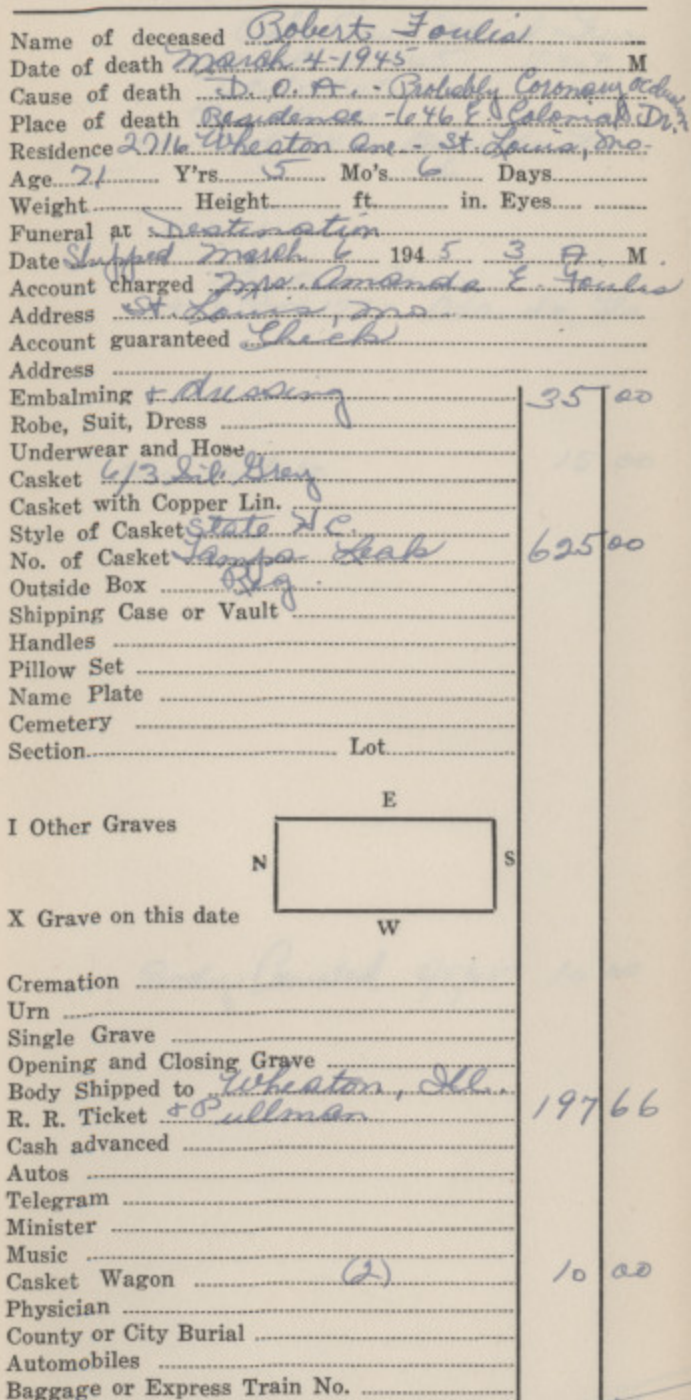 Name of deceased Robert Foulis
Date of death March 4-1945 M
Cause of death D. O. A. - Probably Coronary occlusion
Place of death Residence - 646 E. Colonial Dr.
Residence 2716 Wheaton Ave - St. Louis, Mo.
Age 71 Y'rs 5 Mo's 6 Days
Weight Height ft. in. Eyes
Funeral at Destination
Date Shipped March 6 1945 3 A. M.
Account charged Mrs. Amanda E. Foulis
Address St. Louis, Mo.
Account guaranteed Check
Address
Embalming & dressing 35 00
Robe, Suit, Dress
Underwear and Hose
Casket 6/3 Sil. Grey
Casket with Copper Lin.
Style of Casket State H.C.
No. of Casket Tampa 625 00
Outside Box Reg
Shipping Case or Vault
Handles
Pillow Set
Name Plate
Cemetery
Section Lot
E
I Other Graves
N S
X Grave on this date
W
Cremation
Urn
Single Grave
Opening and Closing Grave
Body Shipped to Wheaton, Ill.
R. R. Ticket & Pullman 197 66
Cash advanced
Autos
Telegram
Minister
Music
Casket Wagon (2) 10 00
Physician
County or City Burial
Automobiles
Baggage or Express Train No.